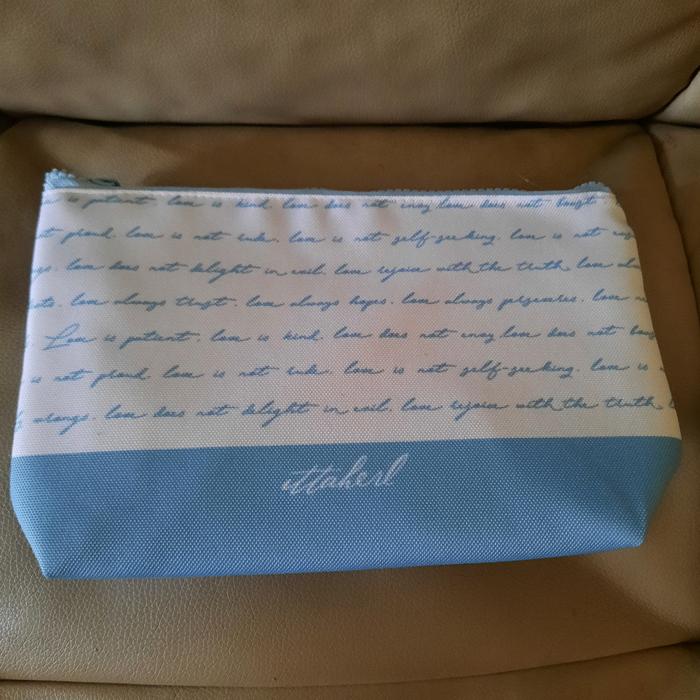 is patient. love is kind. love does not envy. love does not boast
t proud. love is not rude. love is not self-seeking. love is not
gs. love does not delight in evil. love rejoice with the truth. love
love always trust. love always hopes. love always perseveres. love
Love is patient. love is kind. love does not envy. love does not
is not proud. love is not rude. love is not self-seeking. love is
wrongs. love does not delight in evil. love rejoice with the truth.
ittaherl